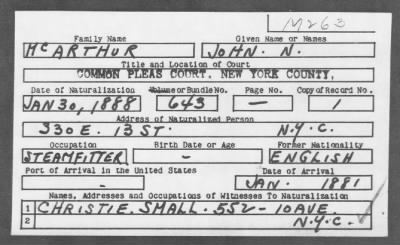 M263
Family Name Given Name or Names
McARTHUR JOHN. N.
Title and Location of Court
COMMON PLEAS COURT, NEW YORK COUNTY,
Date of Naturalization Volume or Bundle No. Page No. Copy of Record No.
JAN 30, 1888 643 — 1
Address of Naturalized Person
330 E. 13 ST. N.Y.C.
Occupation Birth Date or Age Former Nationality
STEAMFITTER - ENGLISH
Port of Arrival in the United States Date of Arrival
- JAN. 1881
Names, Addresses and Occupations of Witnesses To Naturalization
1 CHRISTIE. SMALL. 552 - 10 AVE.
2 N.Y.C.